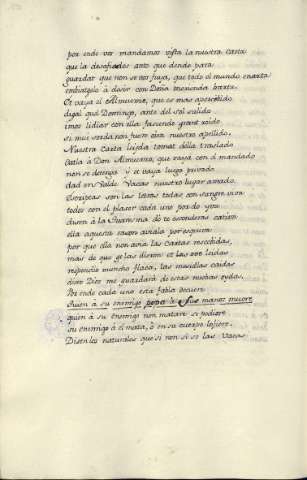 por ende vos mandamos vista la nuestra Carta
que la desafiedes ante que dende para
guardar que non se vos fuya, que todo el mundo encarta
embiatgelo à desir con Doña merienda farta.
Et vaya el Almuerzo, que es mas apercebido
digal que Domingo, ante del sol salido
imos lidiar con ella faciendo grant roido
si muy sorda non fuere oirá nuestro apellido.
Nuestra Carta leyda tomat della traslado
Datla à Don Almuerzo, que vaya con el mandado
non se detenga y et vaya luego privado
dada en Valde Vacas nuestro lugar amado.
Escriptas son las letras todas con sangre viva
todos con el plaser cada uno por do yva
disen à la Quaresma dò te asconderas cativa
ella aquesta rason aviala por esquiva
por que ella non avia las Cartas rescebidas,
mas de que ge las dieron et las ovo leidas
respondió mucho flaca, las mexillas caidas
diso Dios me guardará de estas nuevas oydas.
Por ende cada uno esta fabla decuere
Quien à su enemigo popa à sus manos muere
quien à su enemigo non matare si podiere
su enemigo à él matará, ò en su cuerpo lo fiere.
Disen los naturales que si non solas las Vacas